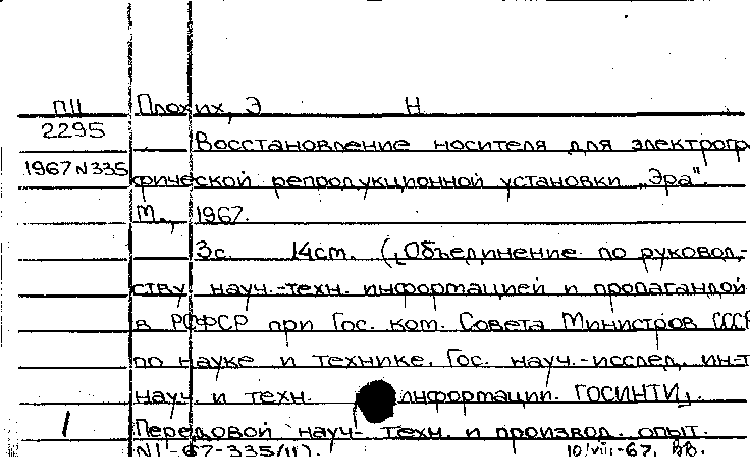 ПЦ Плохих, Э Н
2295 Восстановление носителя для электрогр
1967 N 335 фической репродукционной установки „Эра".
М., 1967.
3с. 14см. (Объединение по руковод-
ству науч.-техн. информацией и пропагандой
в РСФСР при Гос. ком. Совета Министров СССР
по науке и технике. Гос. науч.-исслед. ин-т
науч. и техн. информации. ГОСИНТИ).
1 Передовой науч- техн. и производ. опыт.
N1-67-335/11). 10/VII-67. ВВ.